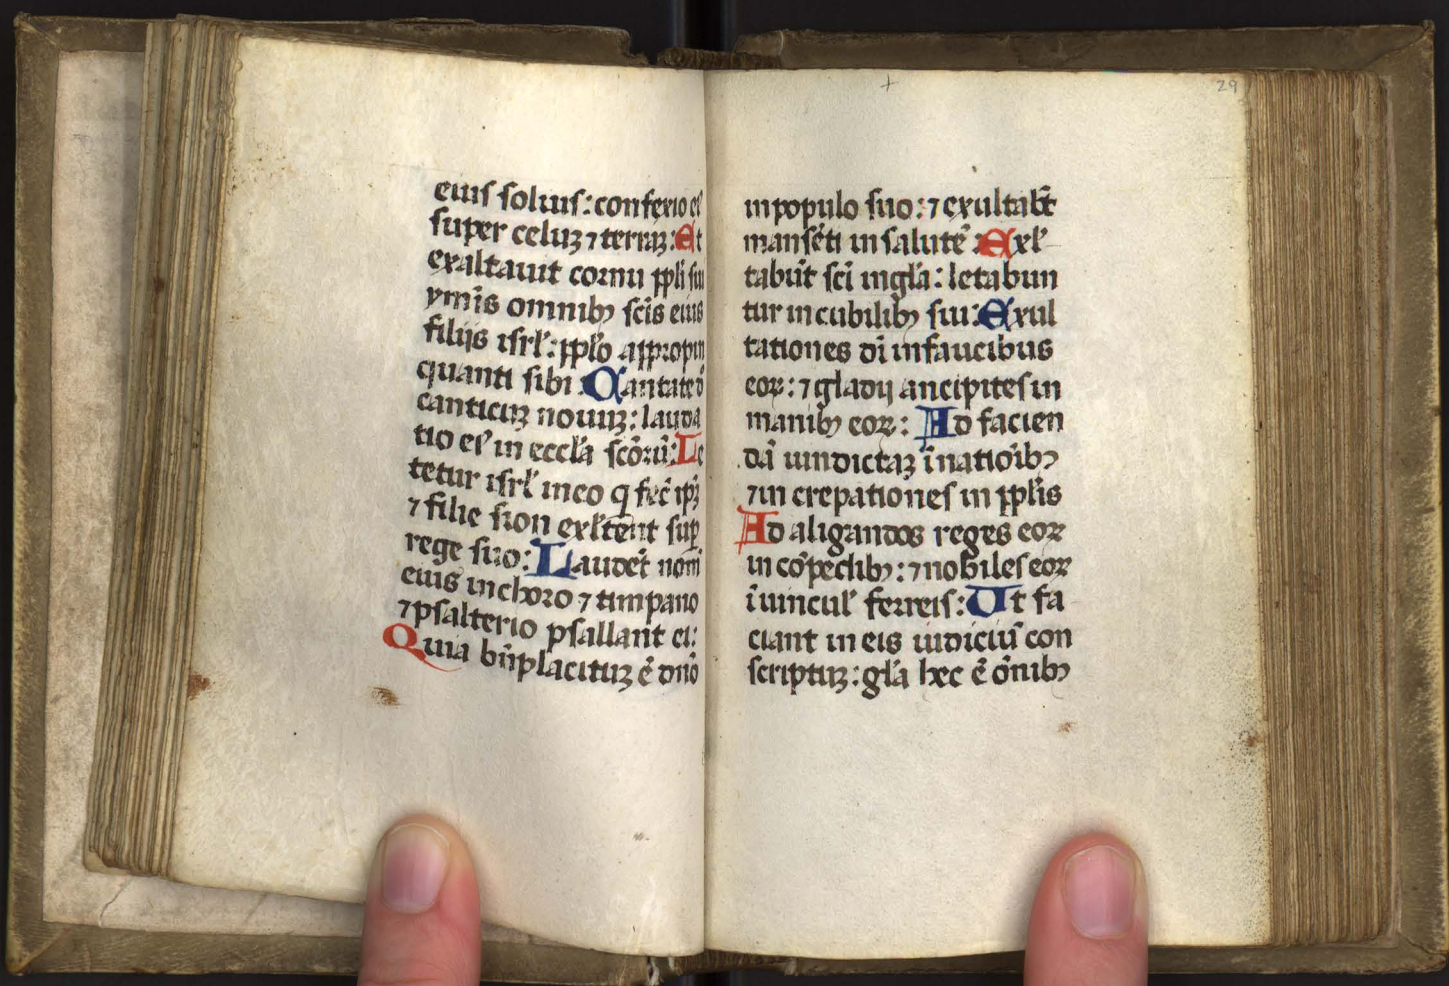 eius solius: confessio eiꝰ
super celuꝫ ⁊ terraꝫ: Et
exaltauit cornu ppli sui
ymnis omnibꝫ sc̄is eius
filijs isrl̓: pplo appropin
quanti sibi. Cantate d̄
canticuꝫ nouuꝫ: lauda
tio eiꝰ in eccl̓a sc̄oꝛū: Le
tetur isrl̓ in eo q̄ fec̄ ip̄ꝫ
⁊ filie sion exl̓tent sup̱
rege suo: Laudēt nom̄
eius in choro ⁊ timpano
⁊ psalterio psallant ei:
Quia bn̄placituꝫ ē dn̄o
29
in populo suo: ⁊ exultabt̄
mansēti in salutē: Exl̓
tabūt sc̄i in gl̓a: letabun
tur in cubilibꝫ sui: Exul
tationes dī in faucibus
eoꝝ: ⁊ gladij ancipites in
manibꝫ eoꝝ: Ad facien
dā uindictaꝫ ī natiōibꝫ
⁊ in crepationes in ppl̓is
Ad aligandos reges eoꝝ
in cōpedibꝫ: ⁊ nobiles eoꝝ
ī uincul̓ ferreis: Ut fa
ciant in eis iudiciū con
scriptuꝫ: gl̓a hec ē ōnibꝫ